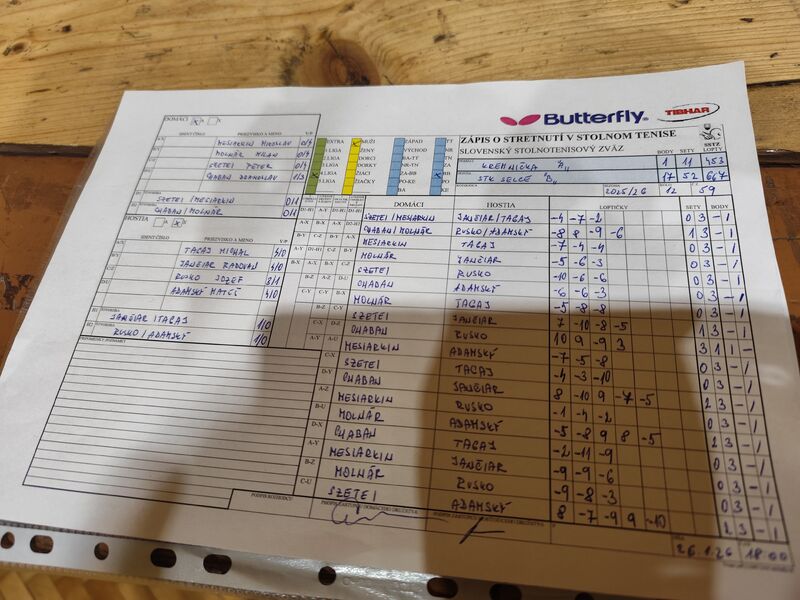 Butterfly
TIBHAR
SSTZ
ZÁPIS O STRETNUTÍ V STOLNOM TENISE
SLOVENSKÝ STOLNOTENISOVÝ ZVÄZ
BODY SETY LOPTY
KREMNIČKA "A" 1 11 453
STK SELCE "B" 17 52 667
2025/26 12 59
DOMÁCI A X
IDENT.ČÍSLO PRIEZVISKO A MENO V/P
MESIARKIN MIROSLAV 0/4
MOLNÁR MILAN 0/4
SZETEI PETER 0/4
CHABAN DRAHOSLAV 1/3
SZETEI / MESIARKIN 0/1
CHABAN / MOLNÁR 0/1
HOSTIA
IDENT.ČÍSLO PRIEZVISKO A MENO V/P
TAGAJ MICHAL 4/0
JANČIAR RADOVAN 4/0
RUSKO JOZEF 3/1
ADAMSKÝ MATEJ 4/0
JANČIAR / TAGAJ 1/0
RUSKO / ADAMSKÝ 1/0
EXTRA MUŽI ZÁPAD TT
LIGA ŽENY VÝCHOD NR
LIGA DORCI BA-TT TN
LIGA DORKY NR-TN ZA
LIGA ŽIACI ZA-BB BB
LIGA ŽIAČKY PO-KE PO
BA KE
DOMÁCI HOSTIA LOPTIČKY SETY BODY
SZETEI / MESIARKIN JANČIAR / TAGAJ -4 -7 -2 0 3 - 1
CHABAN / MOLNÁR RUSKO / ADAMSKÝ -8 8 -9 -6 1 3 - 1
MESIARKIN TAGAJ -7 -4 -4 0 3 - 1
MOLNÁR JANČIAR -5 -6 -3 0 3 - 1
SZETEI RUSKO -10 -6 -6 0 3 - 1
CHABAN ADAMSKÝ -6 -6 -3 0 3 - 1
MOLNÁR TAGAJ -5 -8 -8 0 3 - 1
SZETEI JANČIAR 7 -10 -8 -5 1 3 - 1
CHABAN RUSKO 10 9 -9 3 3 1 1 -
MESIARKIN ADAMSKÝ -7 -5 -8 0 3 - 1
SZETEI TAGAJ -4 -3 -10 0 3 - 1
CHABAN JANČIAR 8 -10 9 -7 -5 2 3 - 1
MESIARKIN RUSKO -1 -4 -2 0 3 - 1
MOLNÁR ADAMSKÝ -5 -8 9 8 -5 2 3 - 1
CHABAN TAGAJ -2 -11 -9 0 3 - 1
MESIARKIN JANČIAR -9 -9 -6 0 3 - 1
MOLNÁR RUSKO -9 -8 -3 0 3 - 1
SZETEI ADAMSKÝ 8 -7 -9 9 -10 2 3 - 1
PODPIS ROZHODCU
26.1.26 18:00